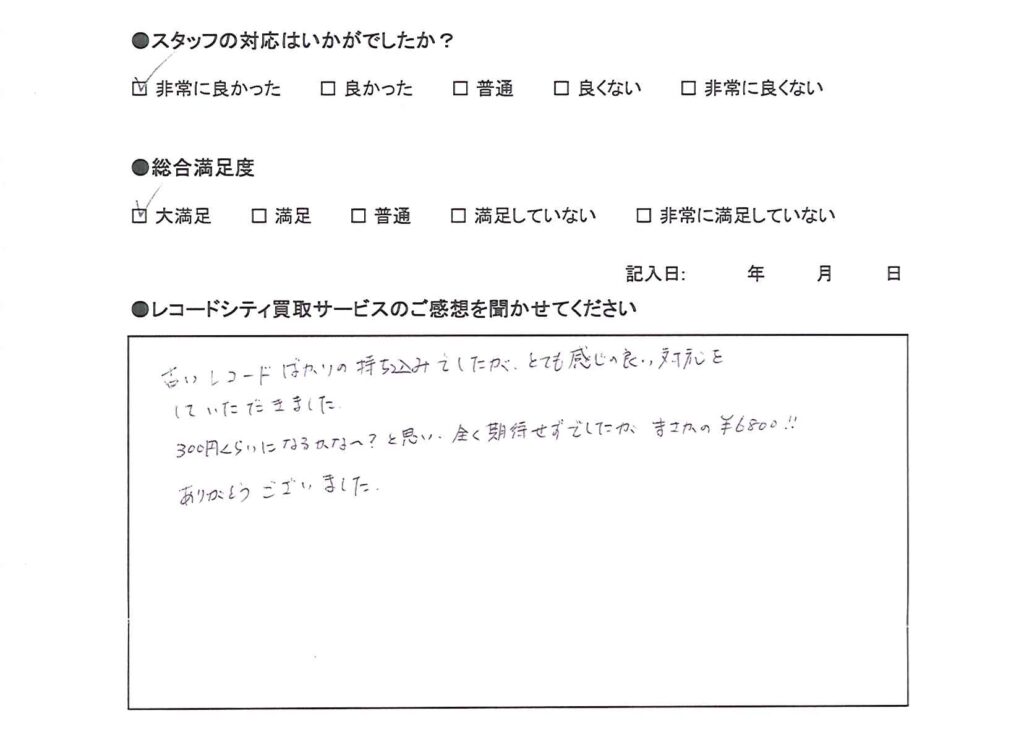 ●スタッフの対応はいかがでしたか？
☑ 非常に良かった □ 良かった □ 普通 □ 良くない □ 非常に良くない
●総合満足度
☑ 大満足 □ 満足 □ 普通 □ 満足していない □ 非常に満足していない
記入日: 年 月 日
●レコードシティ買取サービスのご感想を聞かせてください
古いレコードばかりの持ち込みでしたが、とても感じの良い対応を
していただきました。
300円くらいになるかなへ？と思い、全く期待せずでしたが、まさかの￥6800!!
ありがとうございました。